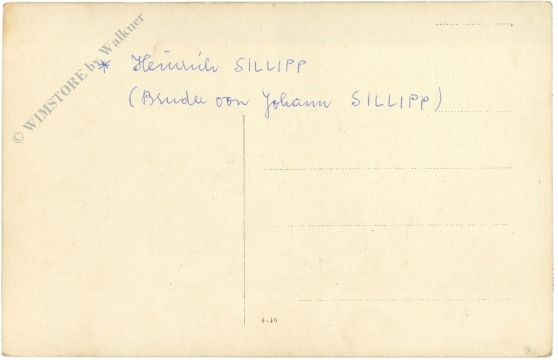 © WIMSTORE by Walkner
* Heinrich SILLIPP
(Bruder von Johann SILLIPP)